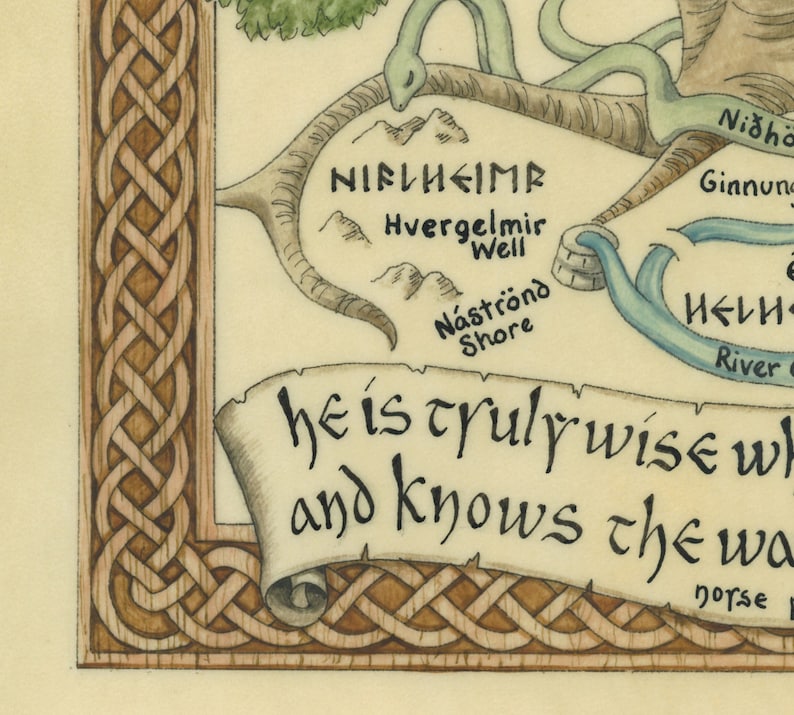 Niðhö
Ginnung
NIFLHEIMR
Hvergelmir
Well
HELHE
Náströnd
Shore
River
he is truly wise wh
and knows the wa
norse